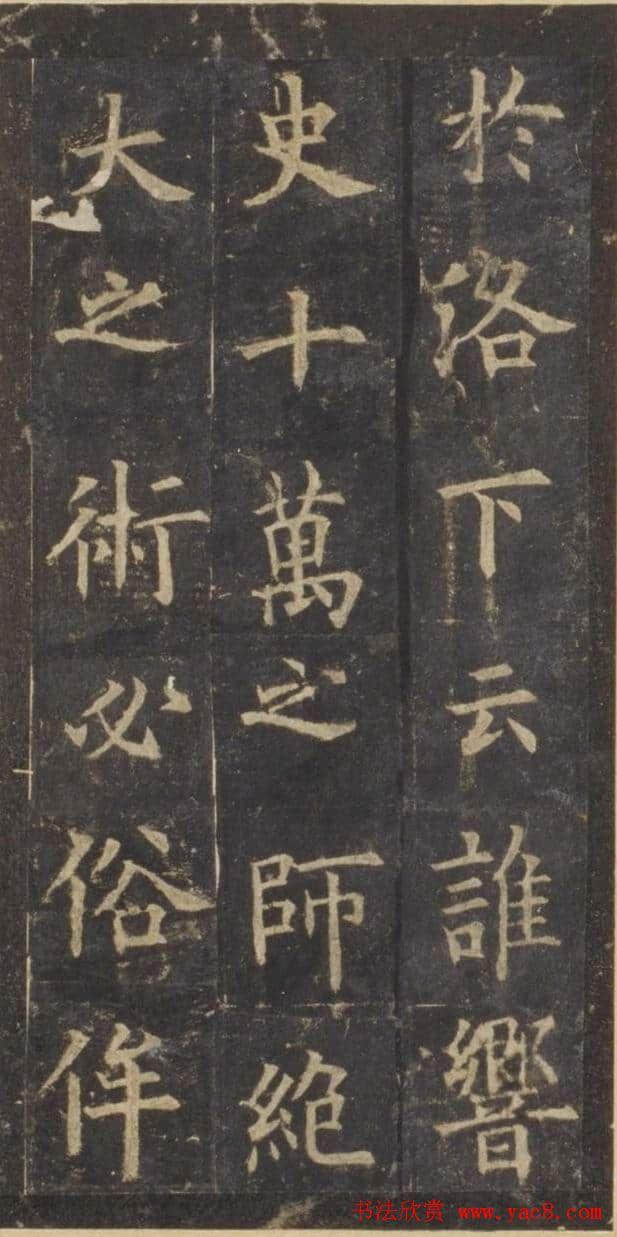 於洛下云誰響
史十萬之師絕
大之術必俗侔
书法欣赏 www.yac8.com